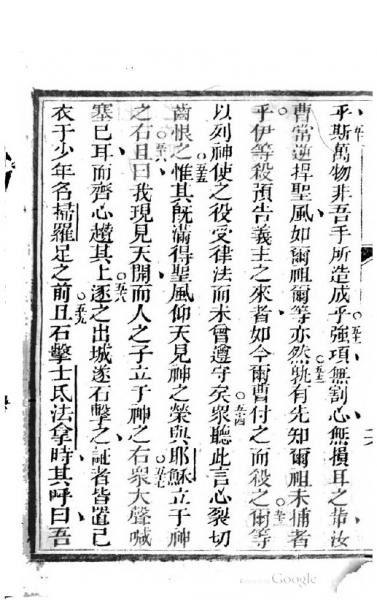 乎斯萬物非吾手所造成乎○五一強項無割心無損耳之輩汝
曹常逆捍聖風如爾祖爾等亦然○五二孰有先知爾祖未捕者
乎伊等殺預告義主之來者如今爾曹付之而殺之○五三爾等
以列神使之役受律法而未曾遵守矣○五四衆聽此言心裂切
齒恨之○五五惟其既滿得聖風仰天見神之榮與耶穌立于神
之右○五六且曰我現見天開而人之子立于神之右○五七衆大聲喊
塞己耳而齊心趲其上○五八逐之出城遂石擊之証者皆置己
衣于少年名掃羅足之前○五九且石擊士氐法拿時其呼曰吾
Google